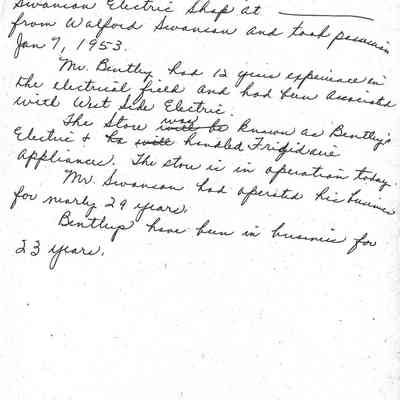 Swanson Electric Shop at
from Walford Swanson and took possession
Jan 7, 1953.
Mr. Bentley had 12 years experience in
the electrical field and had been associated
with West Side Electric.
The Store will be was known as Bentley's
Electric & he will handled Frigidaire
appliances. The store is in operation today.
Mr. Swanson had operated his business
for nearly 29 years.
Bentleys have been in business for
23 years.